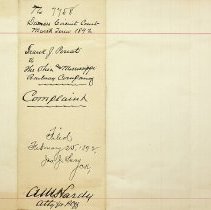 No 7758
Daviess Circuit Court
March Term 1892
Frank J. Poust
vs
The Ohio & Mississippi
Railway Company
Complaint
Filed
February 25 - 192
A.M. Hardy
Atty for Plff